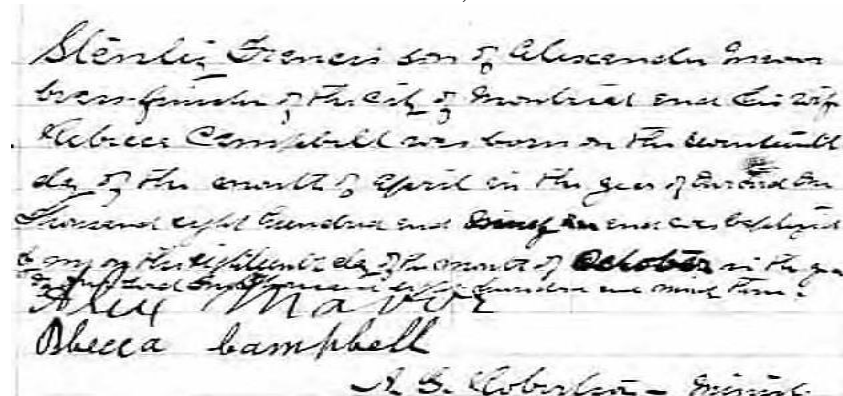 Francis son of Alexander Mavor
brass finisher of the City of Montreal and his wife
Rebecca Campbell was born on the seventeenth
day of the month of April in the year of our Lord one
thousand eight hundred and and was baptized
by me on the eighteenth day of the month of October in the year
of our Lord one thousand eight hundred and ninety three.
Alex Mavor
Rbecca Campbell
A. G. - Minist.